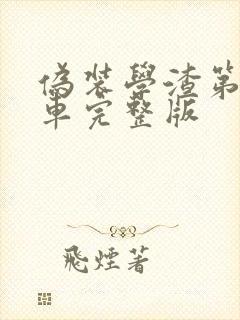 偽裝學渣第
車完整版
飛煙著